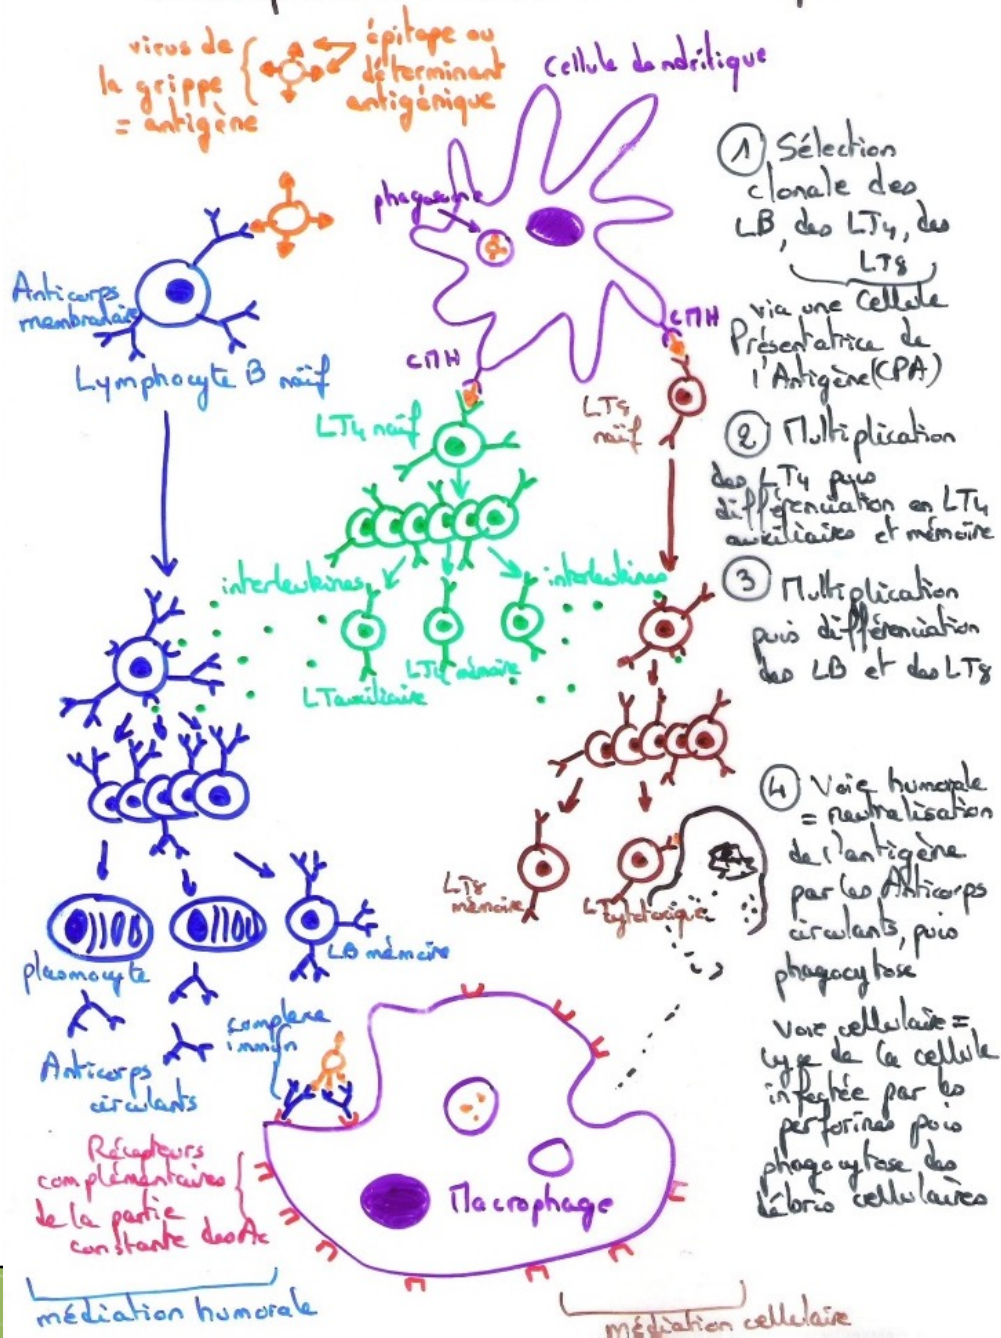 virus de
la grippe
= antigène
épitope ou
déterminant
antigénique
cellule dendritique
phagosome
CMH
CMH
Anticorps
membranaire
Lymphocyte B naïf
LT4 naïf
LT8
naïf
interleukines
interleukines
LTauxiliaire
LT4 mémoire
plasmocyte
LB mémoire
Anticorps
circulants
complexe
immun
LT8
mémoire
LTcytotoxique
Récepteurs
complémentaires
de la partie
constante des Ac
Macrophage
médiation humorale
médiation cellulaire
1 Sélection
clonale des
LB, des LT4, des
LT8
via une Cellule
Présentatrice de
l'Antigène(CPA)
2 Multiplication
des LT4 puis
différenciation en LT4
auxiliaires et mémoire
3 Multiplication
puis différenciation
des LB et des LT8
4 Voie humorale
= neutralisation
de l'antigène
par les Anticorps
circulants, puis
phagocytose
Voie cellulaire =
lyse de la cellule
infectée par les
perforines puis
phagocytose des
débris cellulaires